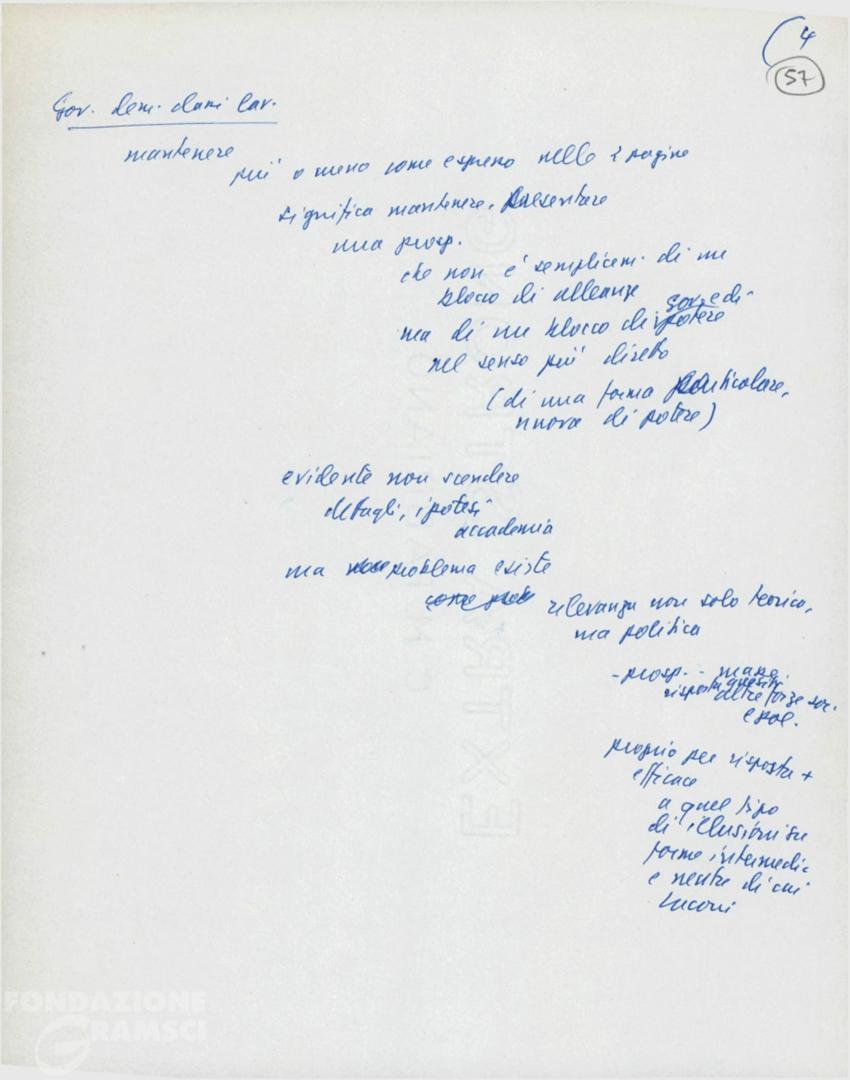 4
57
Gov. dem. classi lav.
mantenere
più o meno come espresso nelle 2 pagine
significa mantenere, presentare
una prosp.
che non è semplicem. di un
blocco di alleanze
ma di un blocco di gov. e di potere
nel senso più diretto
(di una forma particolare,
nuova di potere)
evidente non scendere
dettagli, ipotesi
accademia
ma problema esiste
rilevanza non solo teorica,
ma politica
- prosp. -
risposta quesiti
altre forze soc.
e pol.
proprio per risposta +
efficace
a quel tipo
di illusioni su
forme intermedie
e neutre di cui
Luconi
FONDAZIONE
GRAMSCI
EXTRA STRONG